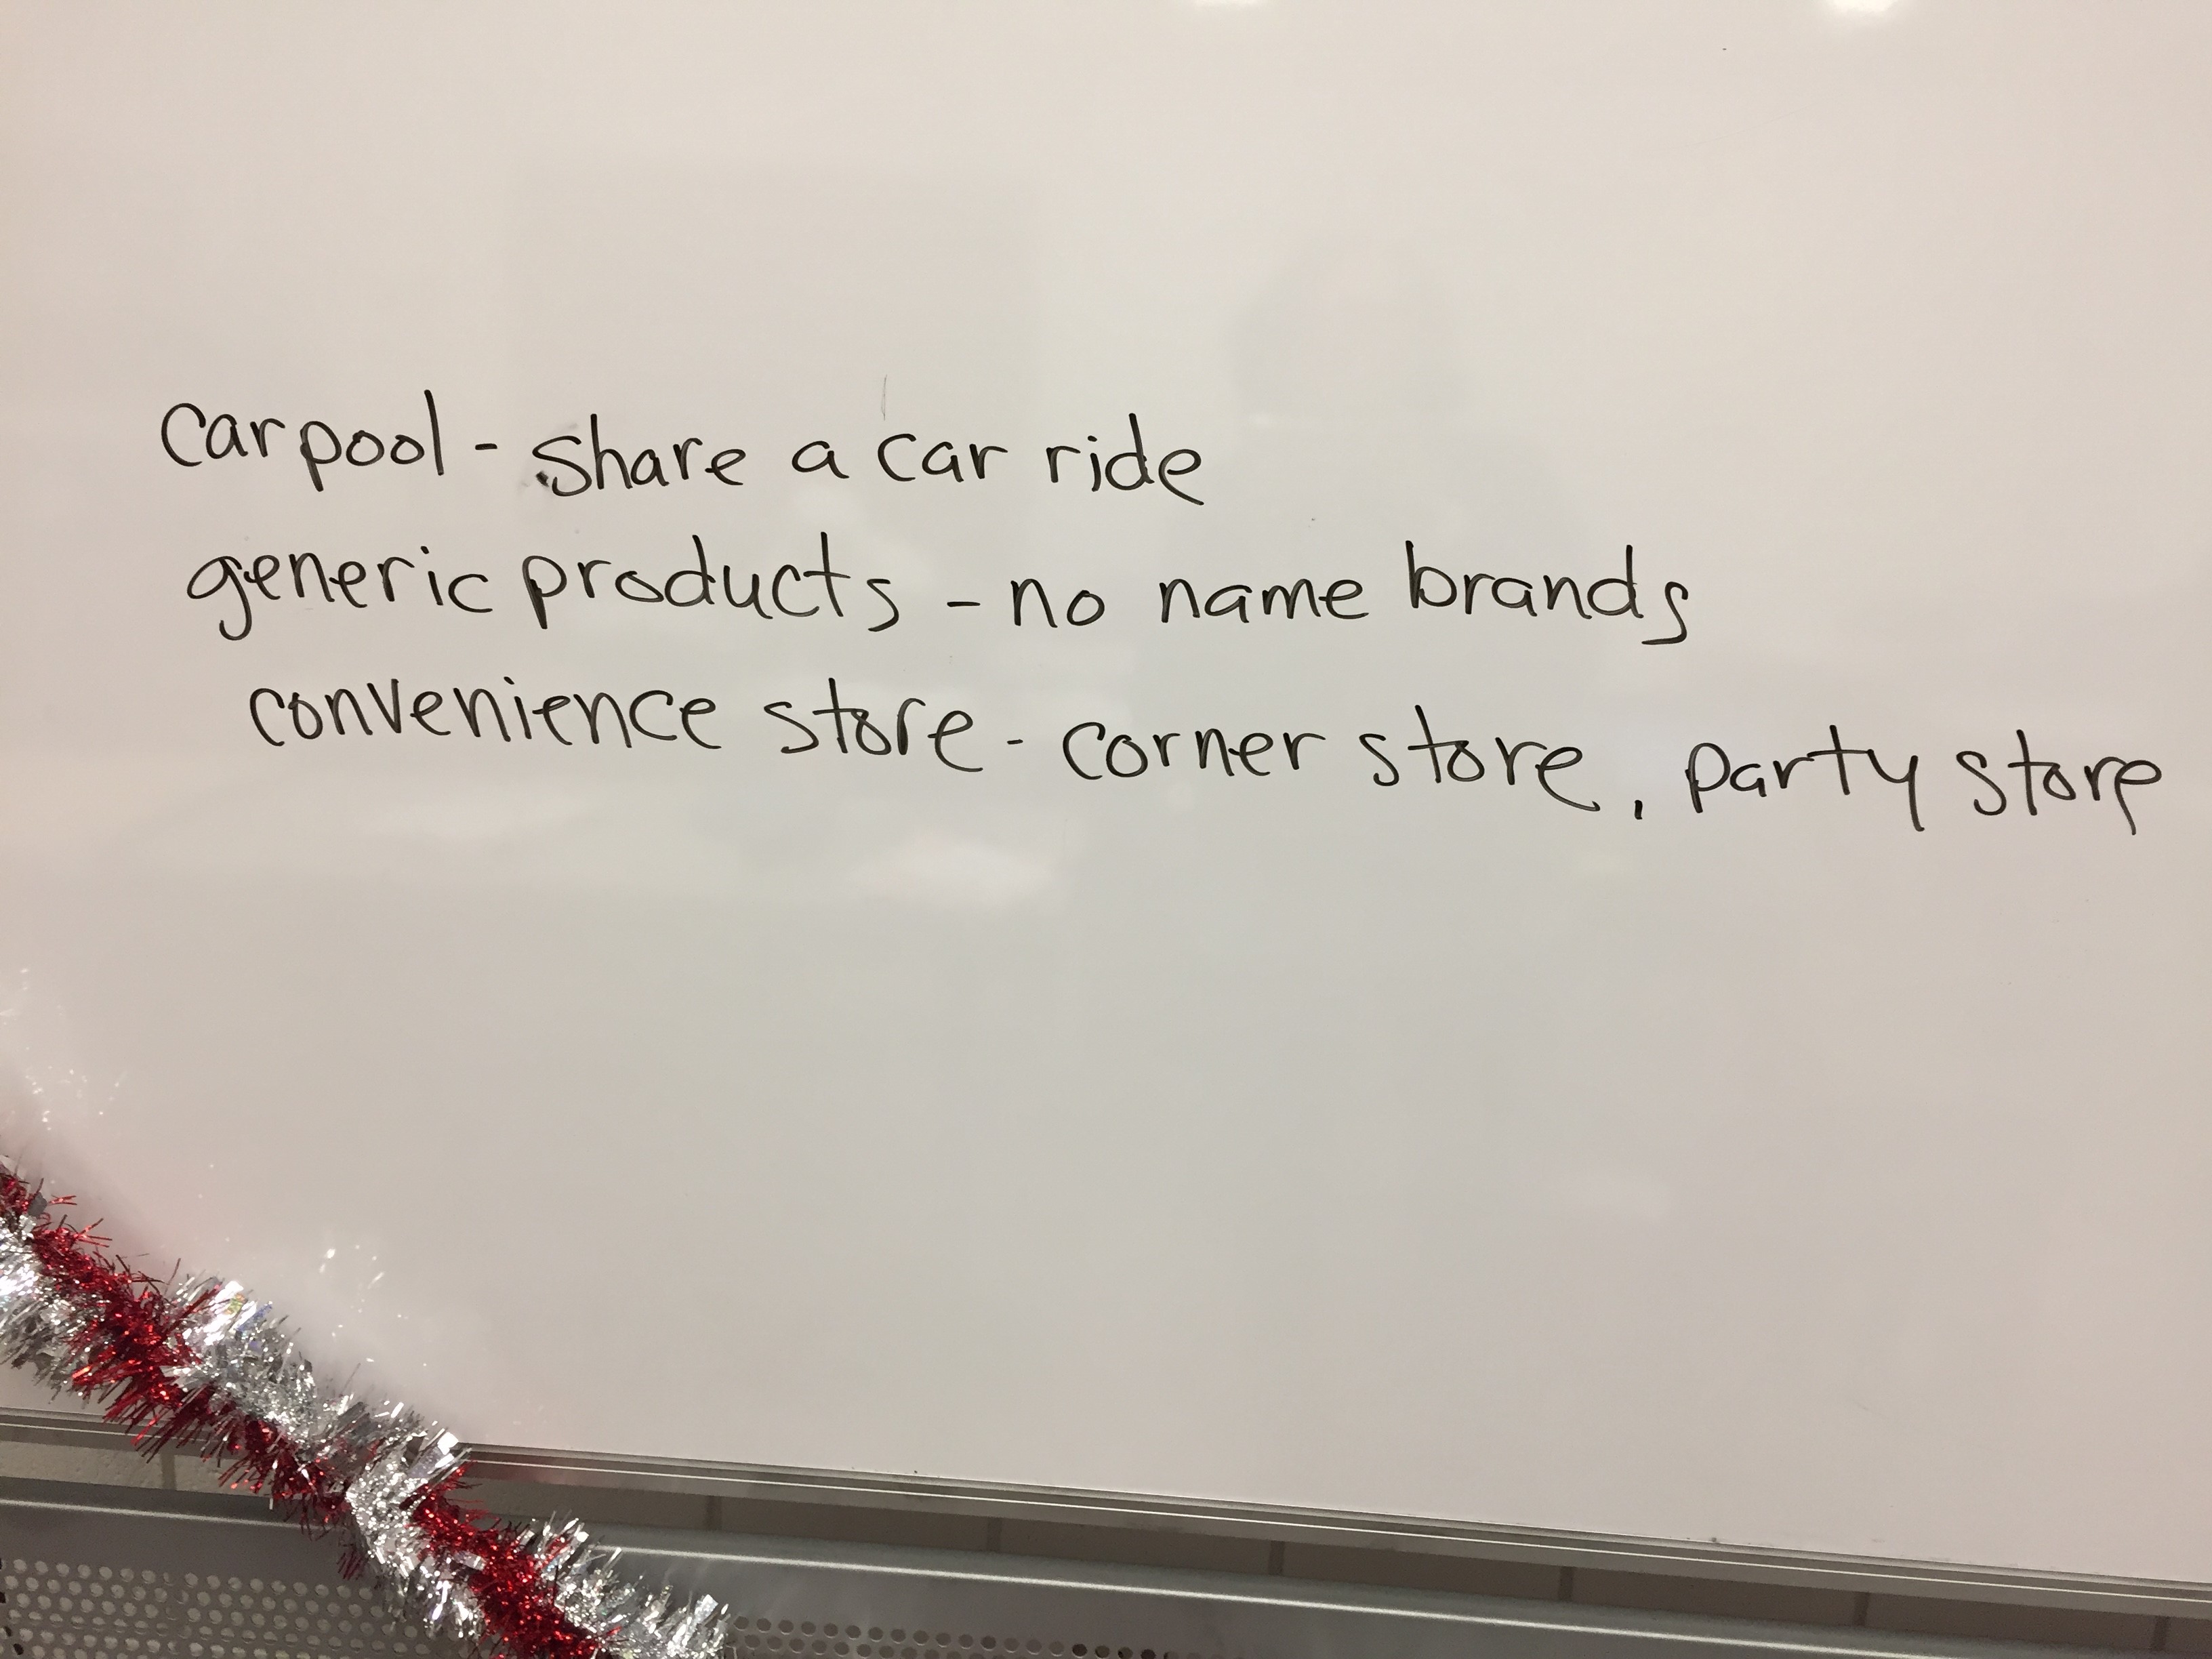 carpool - share a car ride
generic products - no name brands
convenience store - corner store, party store